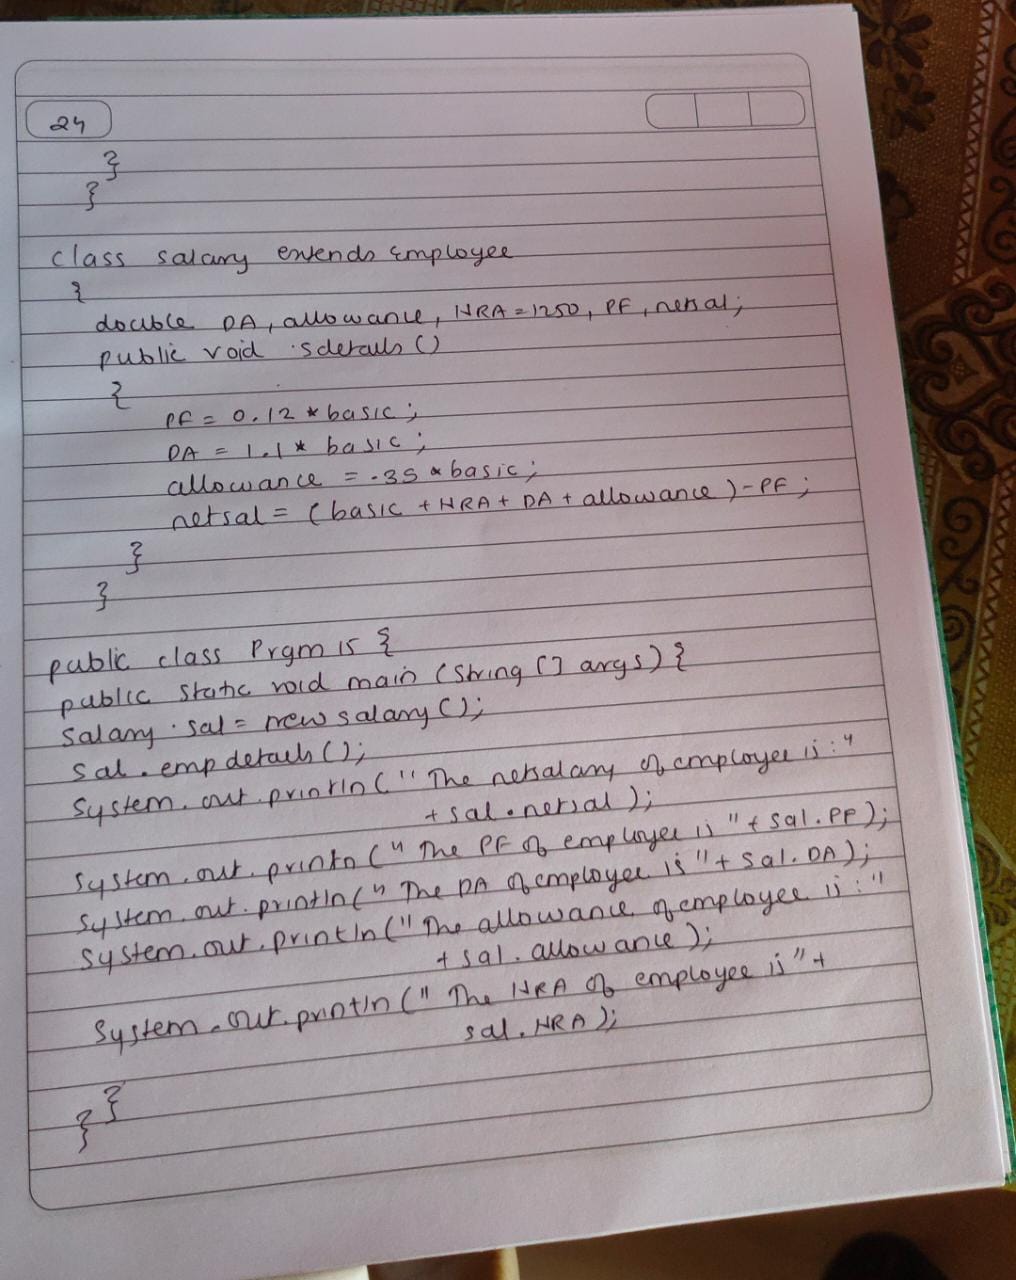 24
}
}
class salary extends Employee
{
double DA, allowance, HRA = 1250, PF, netsal;
public void sdetails ()
{
PF = 0.12 * basic;
DA = 1.1 * basic;
allowance = .35 * basic;
netsal = (basic + HRA + DA + allowance) - PF;
}
}
public class Prgm 15 {
public static void main (String [] args) {
salary sal = new salary ();
sal. emp details ();
System. out. println (" The netsalary of employee is : "
+ sal. netsal );
System. out. println (" The PF of employee is " + sal. PF );
System. out. println (" The DA of employee is " + sal. DA );
System. out. println (" The allowance of employee is : "
+ sal. allowance );
System. out. println (" The HRA of employee is " +
sal. HRA );
}
}